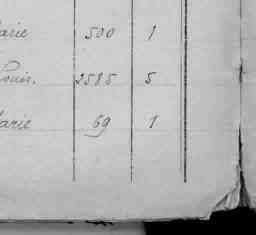 arie 500 1
Louis. 2585 5
arie 69 1